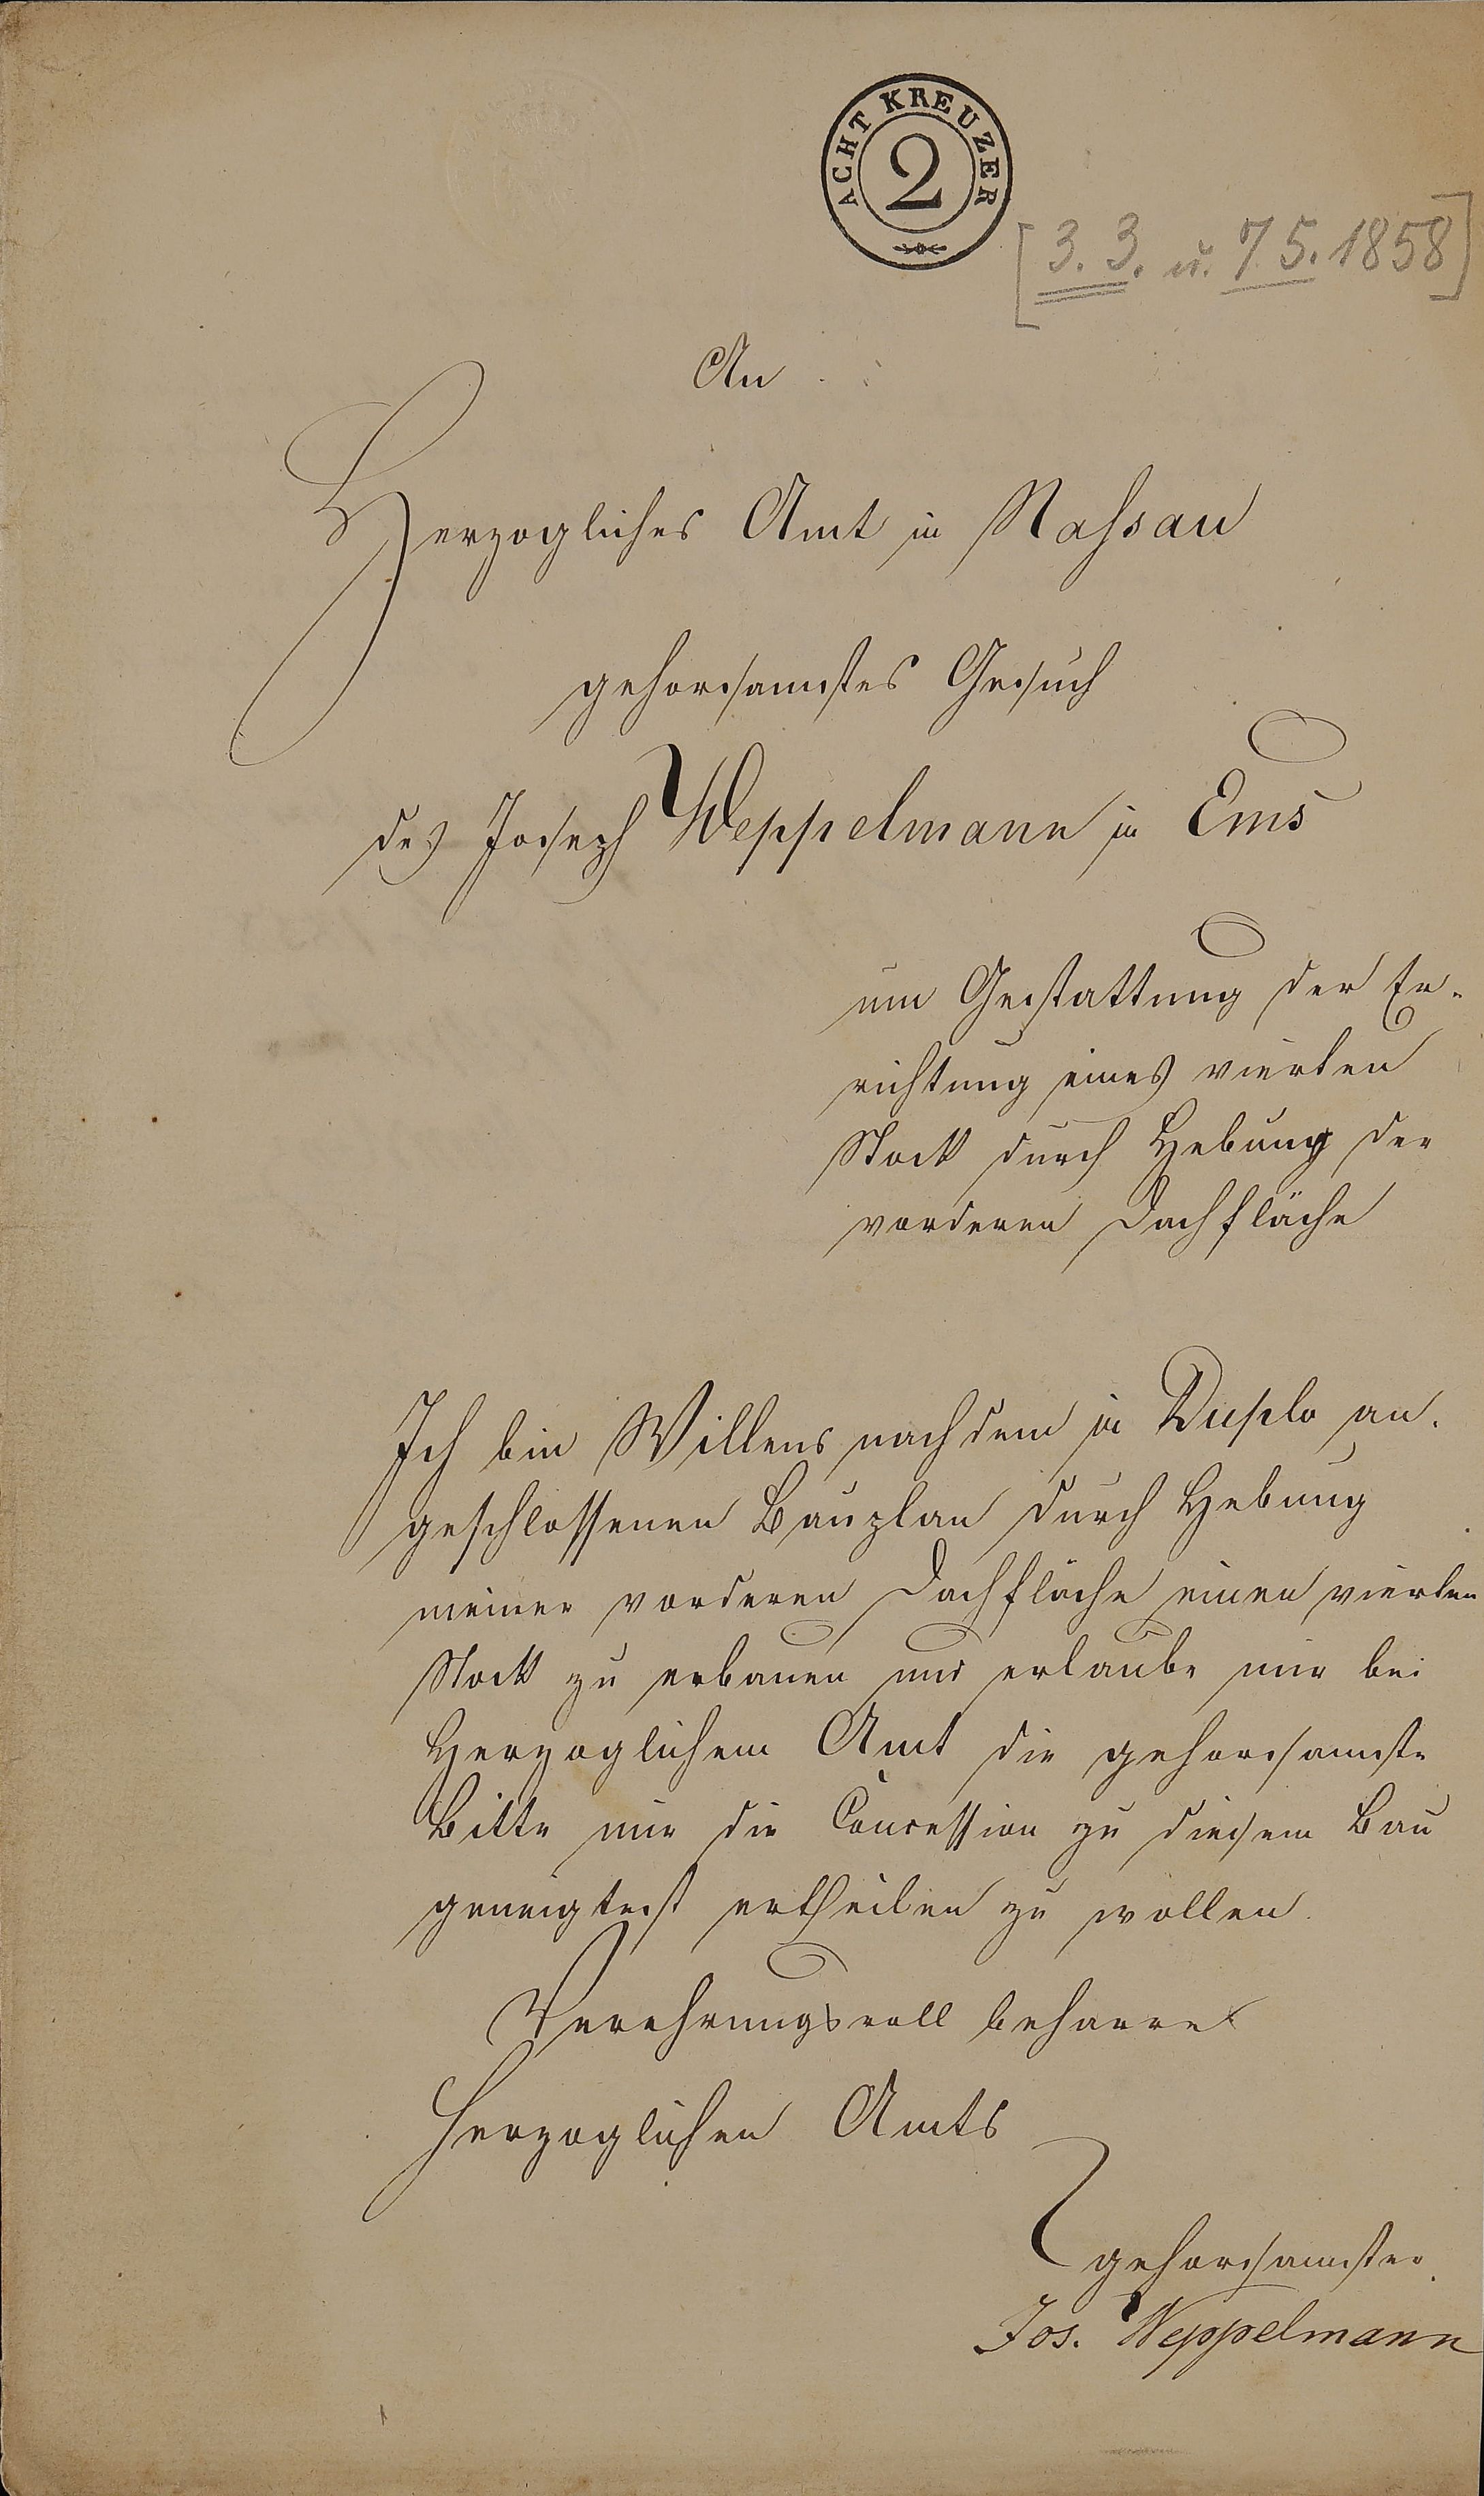 ACHT KREUZER
2
[3. 3. u. 7 5. 1858]
An
Herzogliches Amt in Nassau
gehorsamstes Gesuch
des Joseph Weppelmann in Ems
um Gestattung der Er-
richtung eines vierten
Stock durch Hebung der
vorderen Dachfläche
Ich bin Willens nach dem in Duplo an-
geschlossenen Bauplan durch Hebung
meiner vorderen Dachfläche einen vierten
Stock zu erbauen und erlaube mir bei
Herzoglichem Amt die gehorsamste
Bitte mir die Concession zu diesem Bau
geneigtest ertheilen zu wollen.
Verehrungsvoll beharre
Herzoglichen Amts
gehorsamster
Jos. Weppelmann